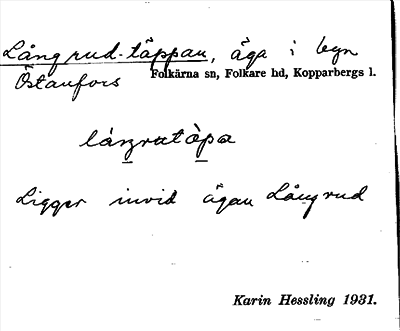 Långrud-täppan, äga i byn
Östanfors Folkärna sn, Folkare hd, Kopparbergs l.
låŋrutàpa
Ligger invid ägan Långrud
Karin Hessling 1931.